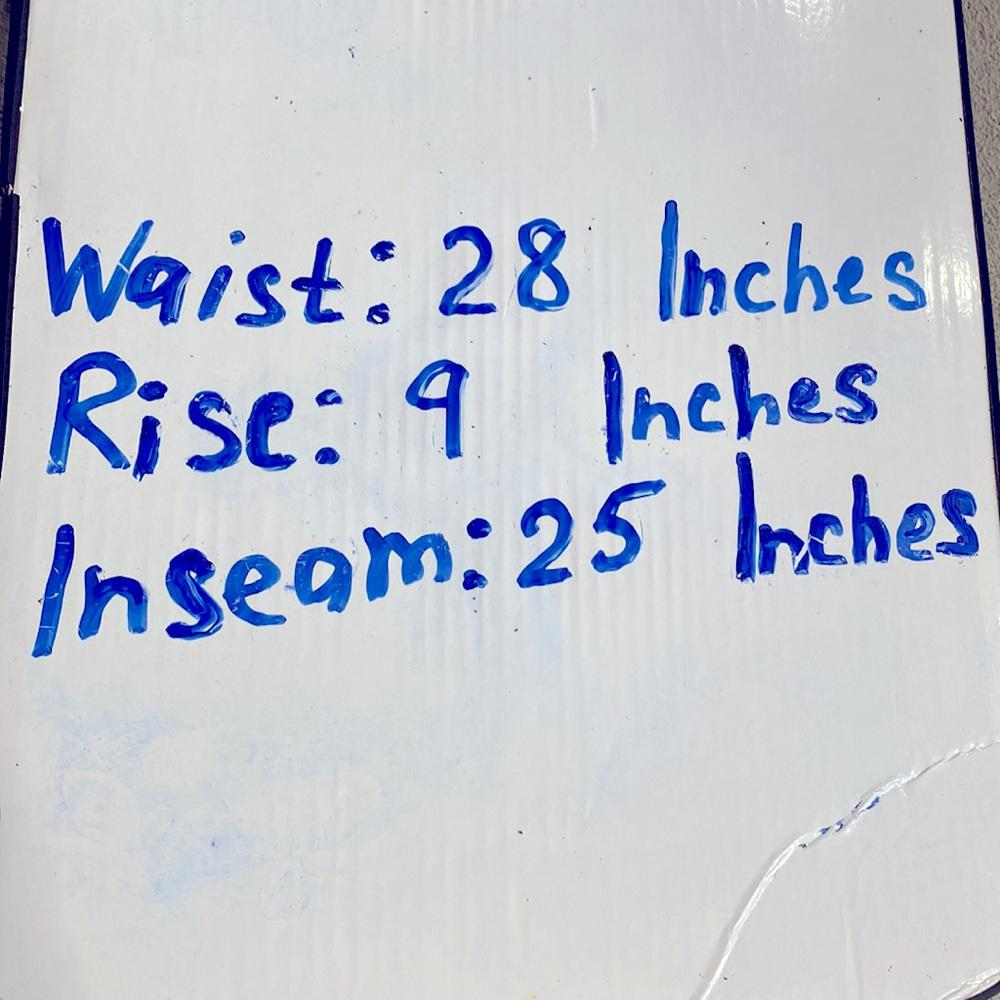 Waist: 28 Inches
Rise: 9 Inches
Inseam: 25 Inches